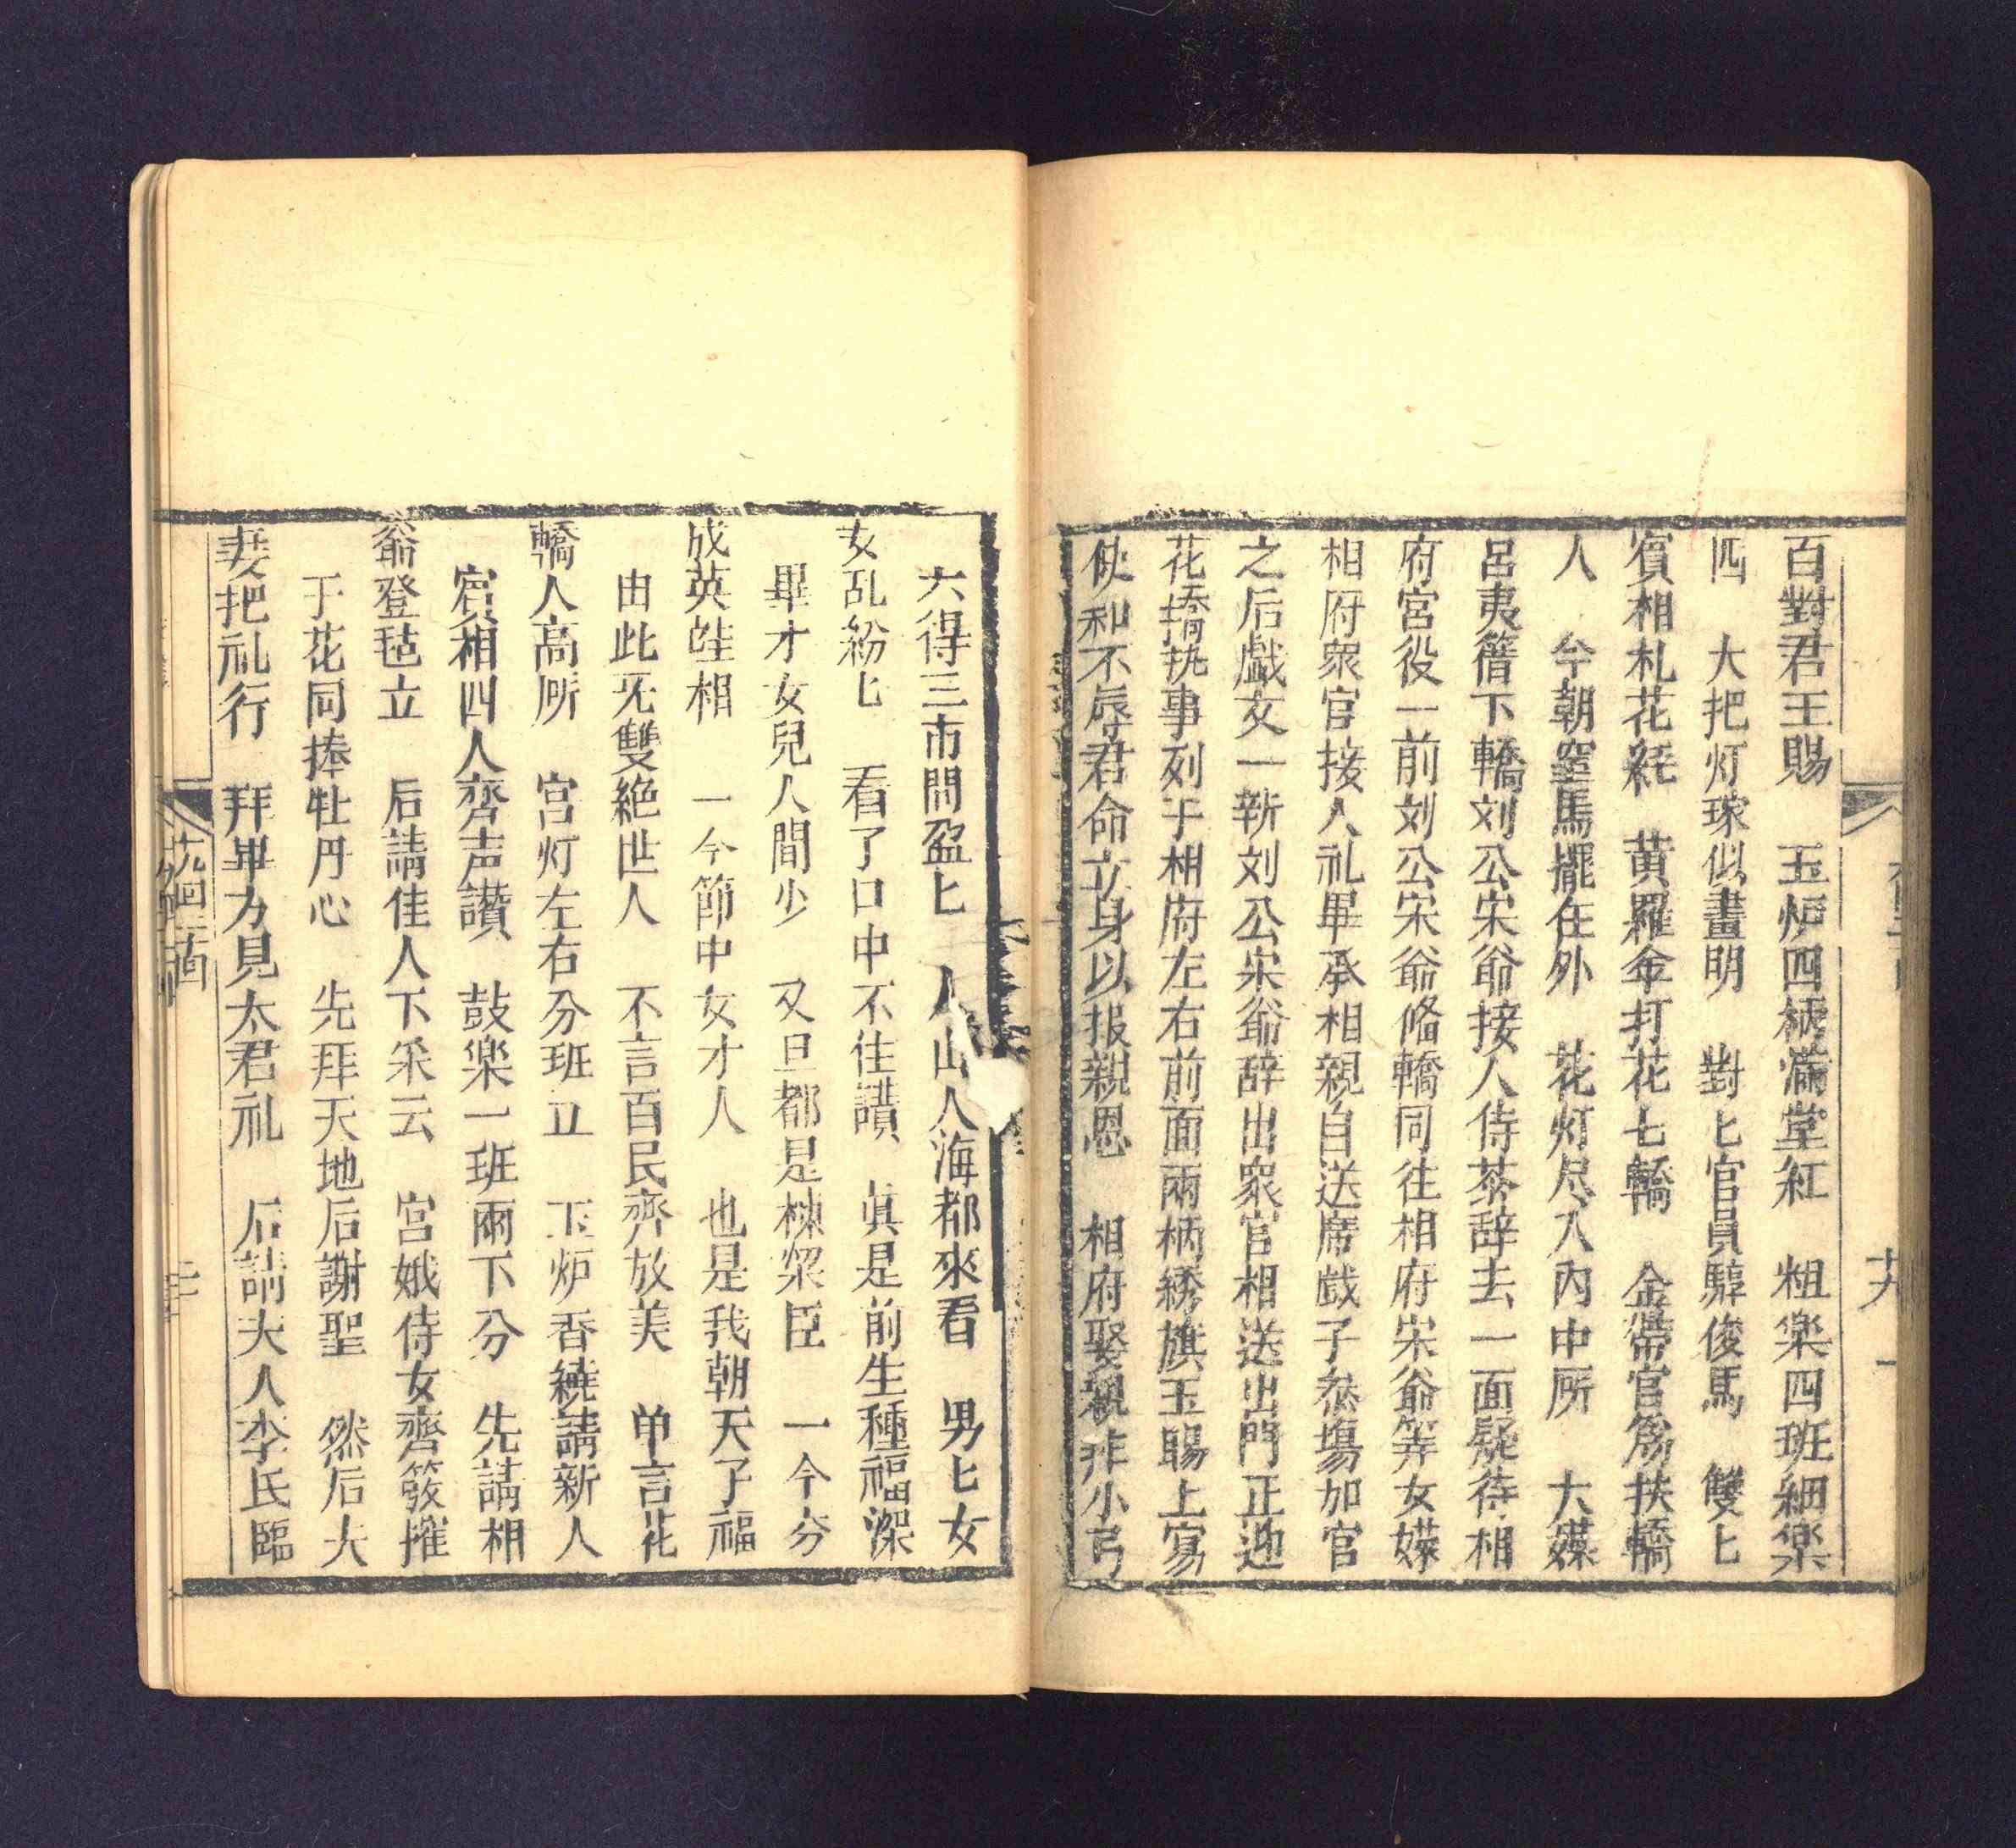 百對君王賜　玉炉四柄满堂紅　粗楽四班細楽
四　大把灯球似畫明　對匕官員騎俊馬　雙匕
賓相札花綵　黄羅傘打花七轎　金帶官筋扶轎
人　今朝空馬擺在外　花灯尽入内中所　大媒
呂夷簮下轎刘公宋爺接人侍茶辞去一面疑待相
府宮役一前刘公宋爺俻轎同往相府宋爺等女媒
相府衆官接人礼畢承相親自送席戯子叅塲加官
之后戯文一新刘公宋爺辞出衆官相送出門正迎
花轎执事列于相府左右前面兩柄綉旗玉賜上寫
使和不辱君命立身以报親恩　相府娶親非小弓
六得三市問盈匕　人山人海都來看　男匕女
女乱紛匕　看了口中不住讃　眞是前生種福深
畢才女兒人間少　又旦都是棟梁臣　一今夯
成英眭相　一今節中女才人　也是我朝天子福
由此旡雙絶世人　不言百民齊放美　单言花
轎人高所　宮灯左右分班立　玉炉香繞請新人
賓相四人齊声讃　鼓楽一班兩下分　先請相
爺登毡立　后請佳人下釆云　宮娥侍女齊簇摧
于花同捧牡丹心　先拜天地后謝聖　然后大
妻把礼行　拜畢方見太君礼　后請夫人李氏臨